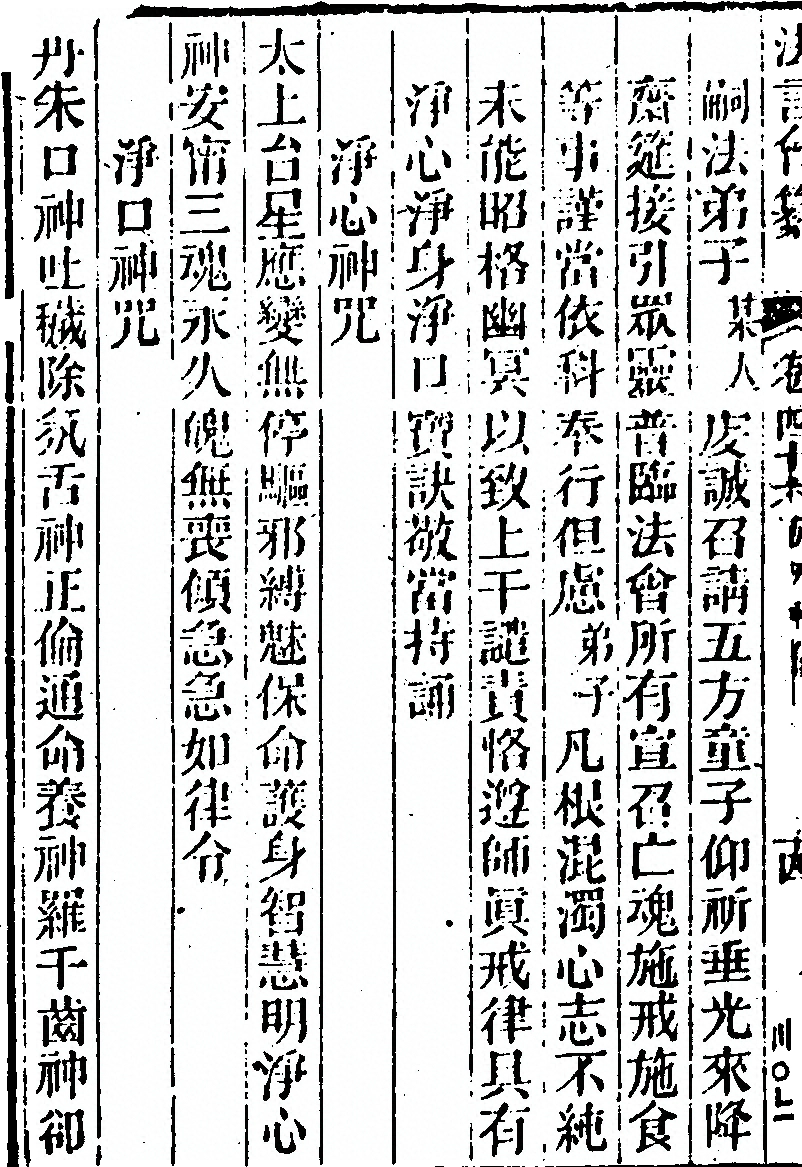 嗣法弟子某人虔誠召請五方童子仰祈垂光來降
齋筵接引眾靈普臨法會所有宣召亡魂施戒施食
等事謹當依科奉行但慮弟子凡根混濁心志不純
未能昭格幽冥以致上干譴責恪遵師真戒律具有
淨心淨身淨口寶訣敬當持誦
淨心神咒
太上台星應變無停驅邪縛魅保命護身智慧明淨心
神安甯三魂永久魄無喪傾急急如律令
淨口神咒
丹朱口神吐穢除氛舌神正倫通命養神羅千齒神卻